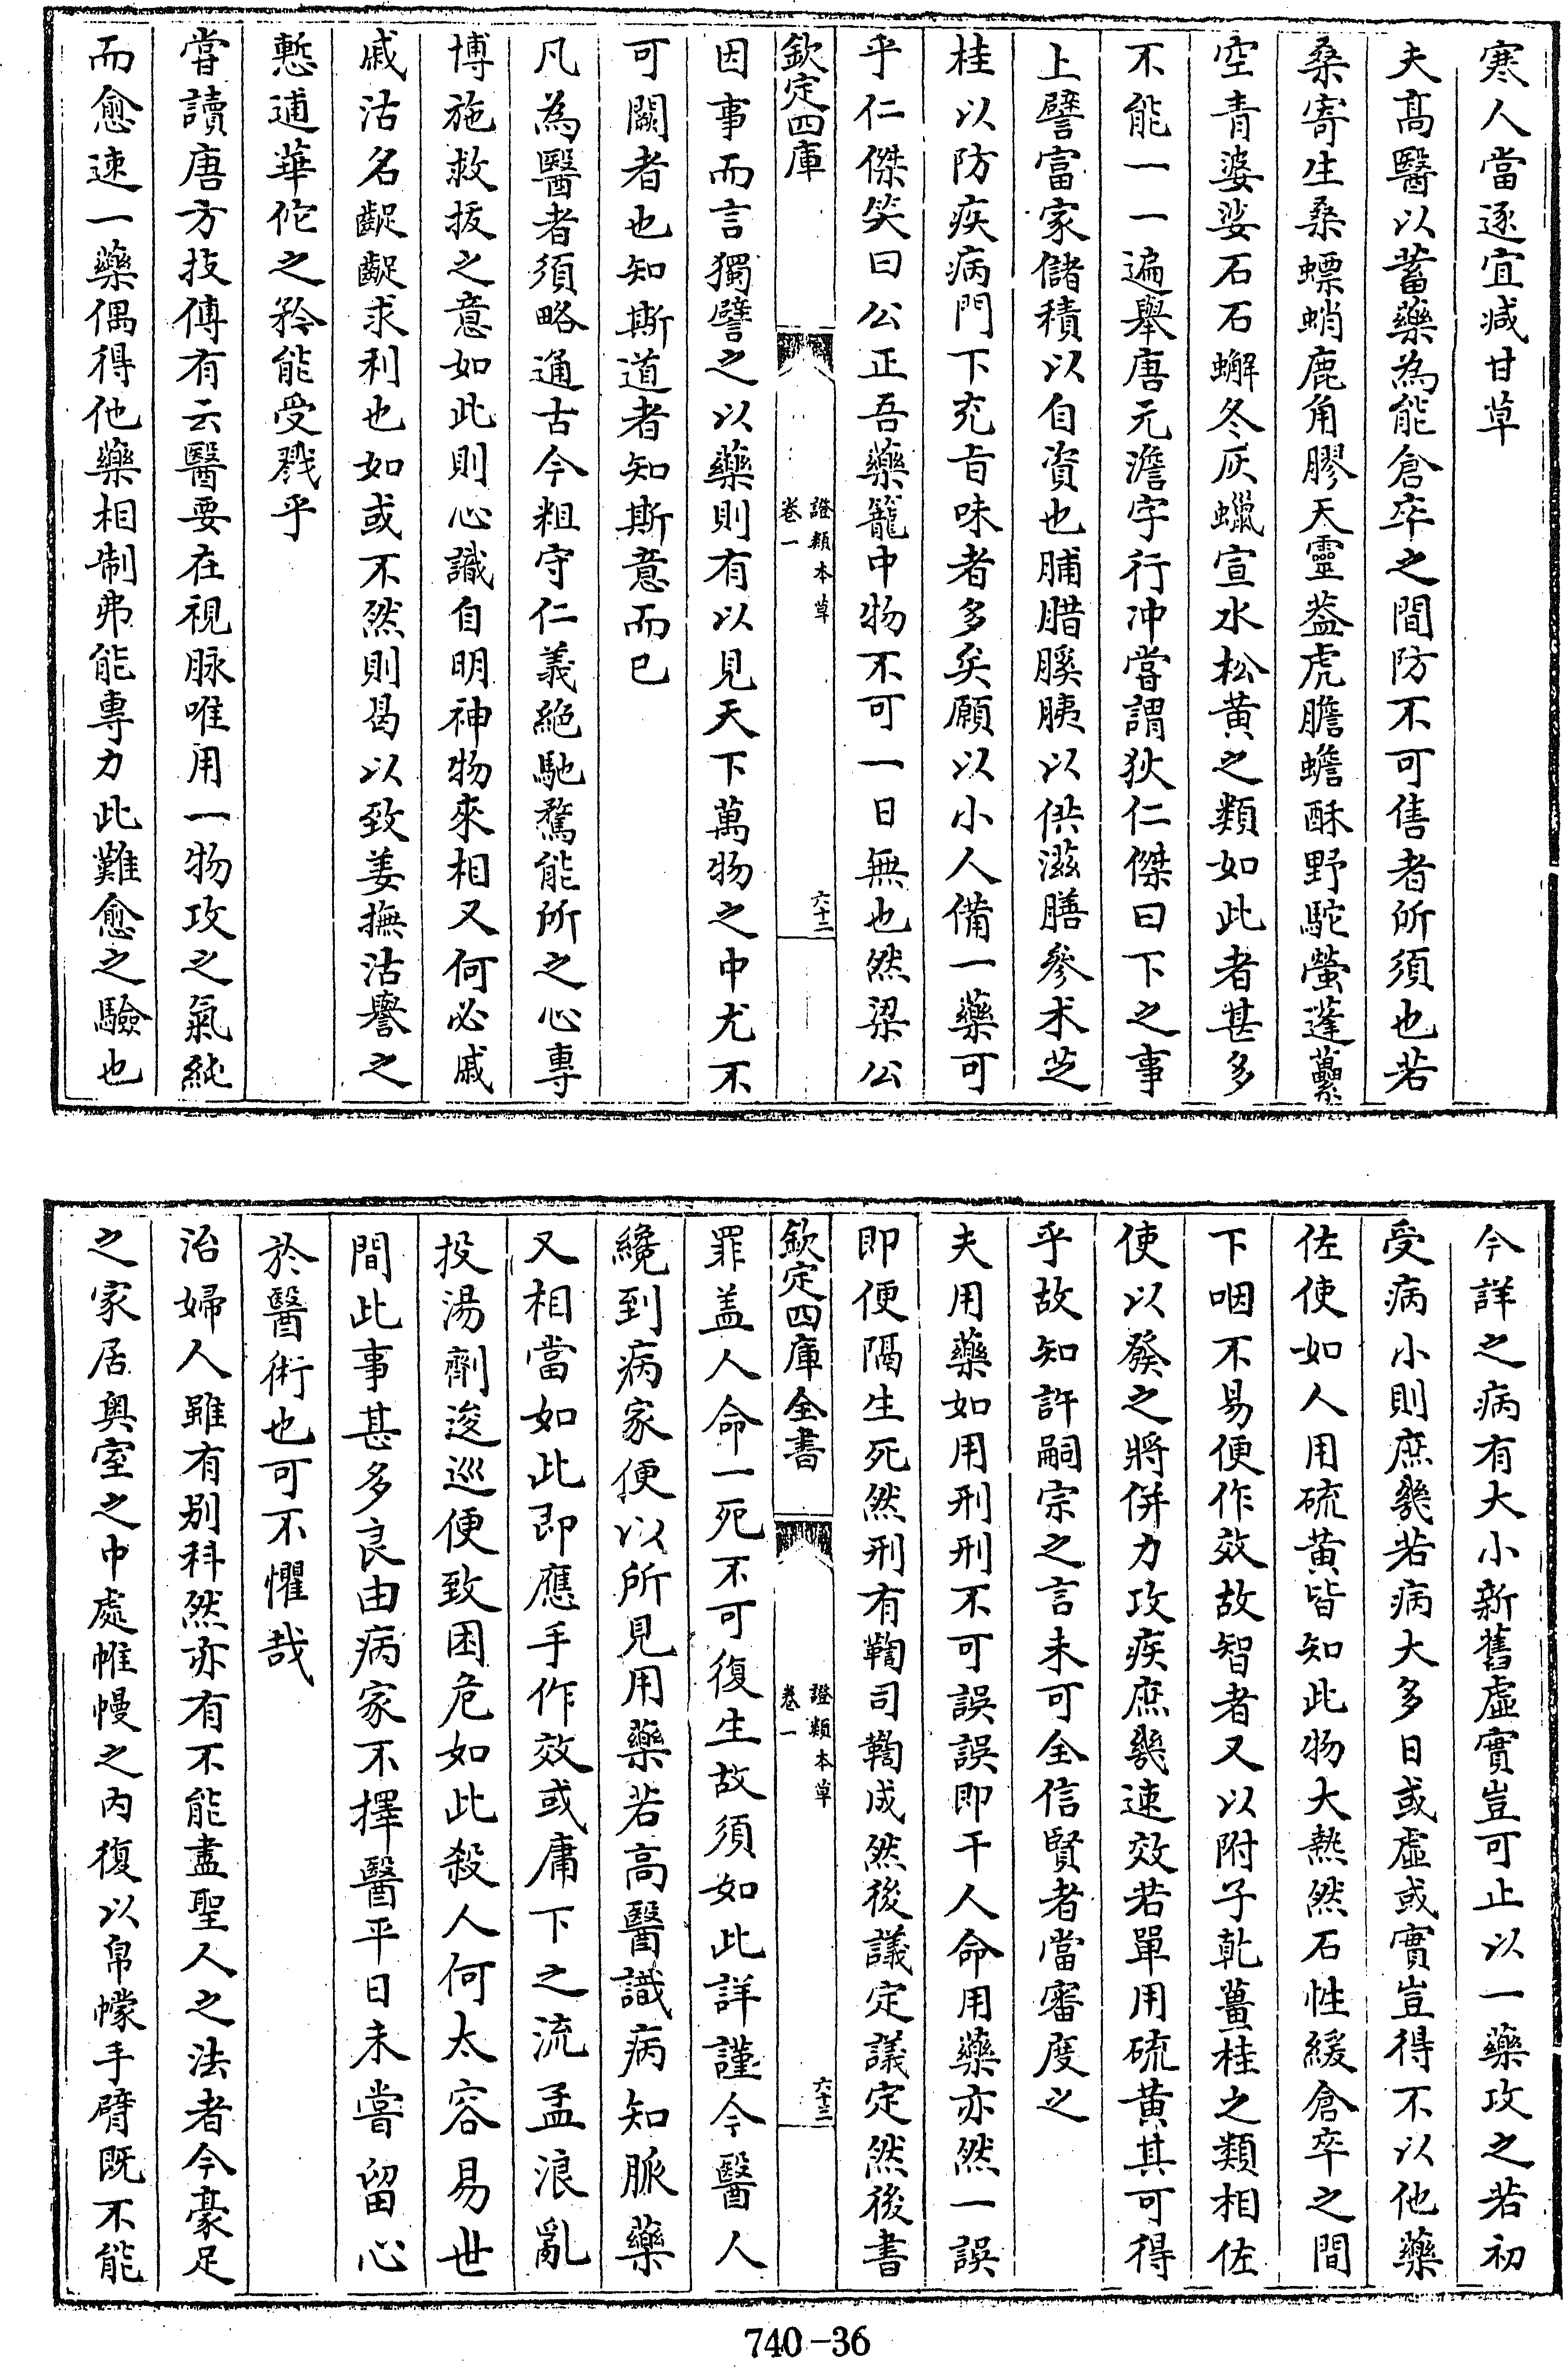 寒人當逐宜减甘草
夫髙醫以蓄藥為能倉卒之間防不可售者所須也若
桑寄生桑螵蛸鹿角膠天靈葢虎膽蟾酥野駝螢蓬蔂
空青婆娑石石蠏冬灰蠟宣水松黄之類如此者甚多
不能一一遍舉唐元澹字行冲嘗謂狄仁傑曰下之事
上譬富家儲積以自資也脯腊膎胰以供滋膳參术芝
桂以防疾病門下充旨味者多矣願以小人備一藥可
乎仁傑笑曰公正吾藥籠中物不可一日無也然梁公
欽定四庫
證類本草
卷一
六十二
因事而言獨譬之以藥則有以見天下萬物之中尤不
可闕者也知斯道者知斯意而已
凡為醫者須略通古今粗守仁義絶馳騖能所之心專
博施救拔之意如此則心識自明神物來相又何必戚
戚沽名齪齪求利也如或不然則曷以致姜撫沽譽之
慙逋華佗之矜能受戮乎
嘗讀唐方技傳有云醫要在視脉唯用一物攻之氣純
而愈速一藥偶得他藥相制弗能專力此難愈之驗也
今詳之病有大小新舊虚實豈可止以一藥攻之若初
受病小則庶幾若病大多日或虚或實豈得不以他藥
佐使如人用硫黄皆知此物大熱然石性緩倉卒之間
下咽不易便作效故智者又以附子乾薑桂之類相佐
使以發之將併力攻疾庶幾速效若單用硫黄其可得
乎故知許嗣宗之言未可全信賢者當審度之
夫用藥如用刑刑不可誤誤即干人命用藥亦然一誤
即便隔生死然刑有鞫司鞫成然後議定議定然後書
欽定四庫全書
證類本草
卷一
六十三
罪盖人命一死不可復生故須如此詳謹今醫人
纔到病家便以所見用藥若高醫識病知脈藥
又相當如此即應手作效或庸下之流孟浪亂
投湯劑逡巡便致困危如此殺人何太容易世
間此事甚多良由病家不擇醫平日未嘗留心
於醫術也可不懼哉
治婦人雖有别科然亦有不能盡聖人之法者今豪足
之家居奥室之中處帷幔之内復以帛幪手臂既不能
740-36